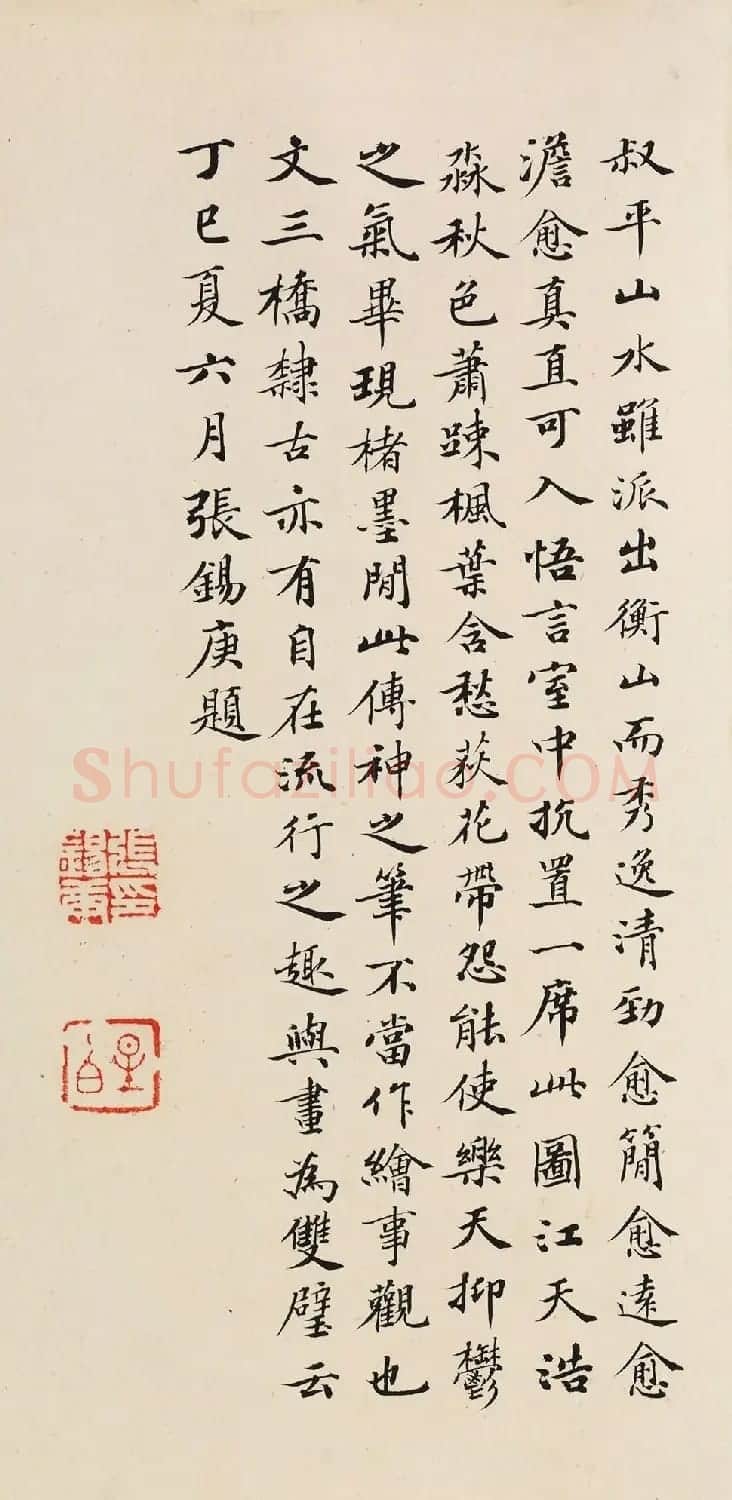 叔平山水雖派出衡山而秀逸清勁愈簡愈遠愈
澹愈真直可入悟言室中抗置一席此圖江天浩
淼秋色蕭踈楓葉含愁荻花帶怨能使樂天抑鬱
之氣畢現楮墨閒此傳神之筆不當作繪事觀也
文三橋隸古亦有自在流行之趣與畫為雙璧云
丁巳夏六月張錫庚題
Shufaziliao.COM